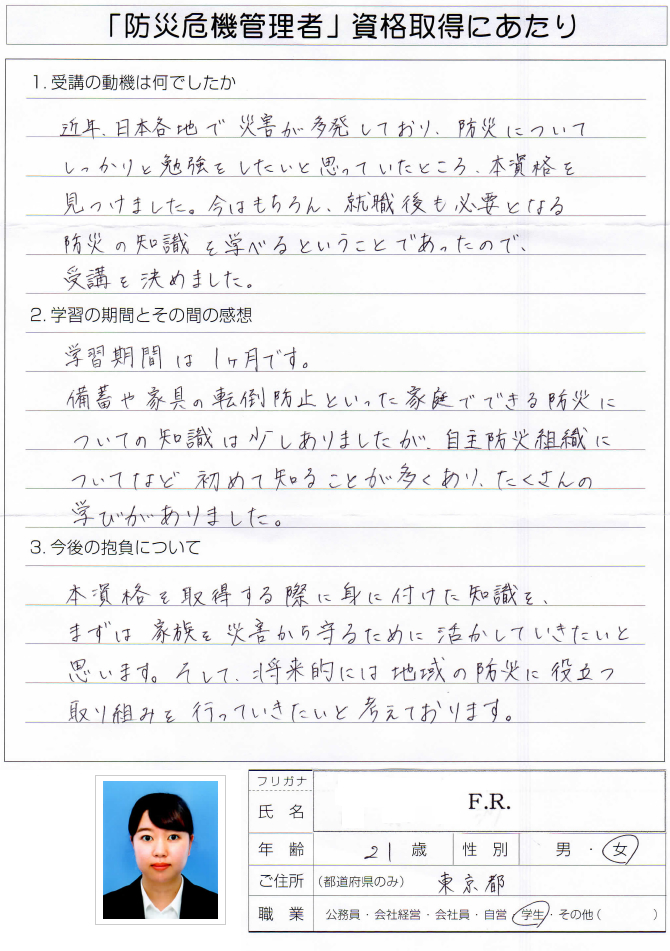 「防災危機管理者」資格取得にあたり
1. 受講の動機は何でしたか
近年、日本各地で災害が多発しており、防災について
しっかりと勉強をしたいと思っていたところ、本資格を
見つけました。今はもちろん、就職後も必要となる
防災の知識を学べるということであったので、
受講を決めました。
2. 学習の期間とその間の感想
学習期間は1ヶ月です。
備蓄や家具の転倒防止といった家庭でできる防災に
ついての知識は少しありましたが、自主防災組織に
ついてなど初めて知ることが多くあり、たくさんの
学びがありました。
3. 今後の抱負について
本資格を取得する際に身に付けた知識を、
まずは家族を災害から守るために活かしていきたいと
思います。そして、将来的には地域の防災に役立つ
取り組みを行っていきたいと考えております。
フリガナ
氏 名 F.R.
年 齢 21 歳 性 別 男 ・ 女
ご住所 (都道府県のみ) 東京都
職 業 公務員・会社経営・会社員・自営・学生・その他( )